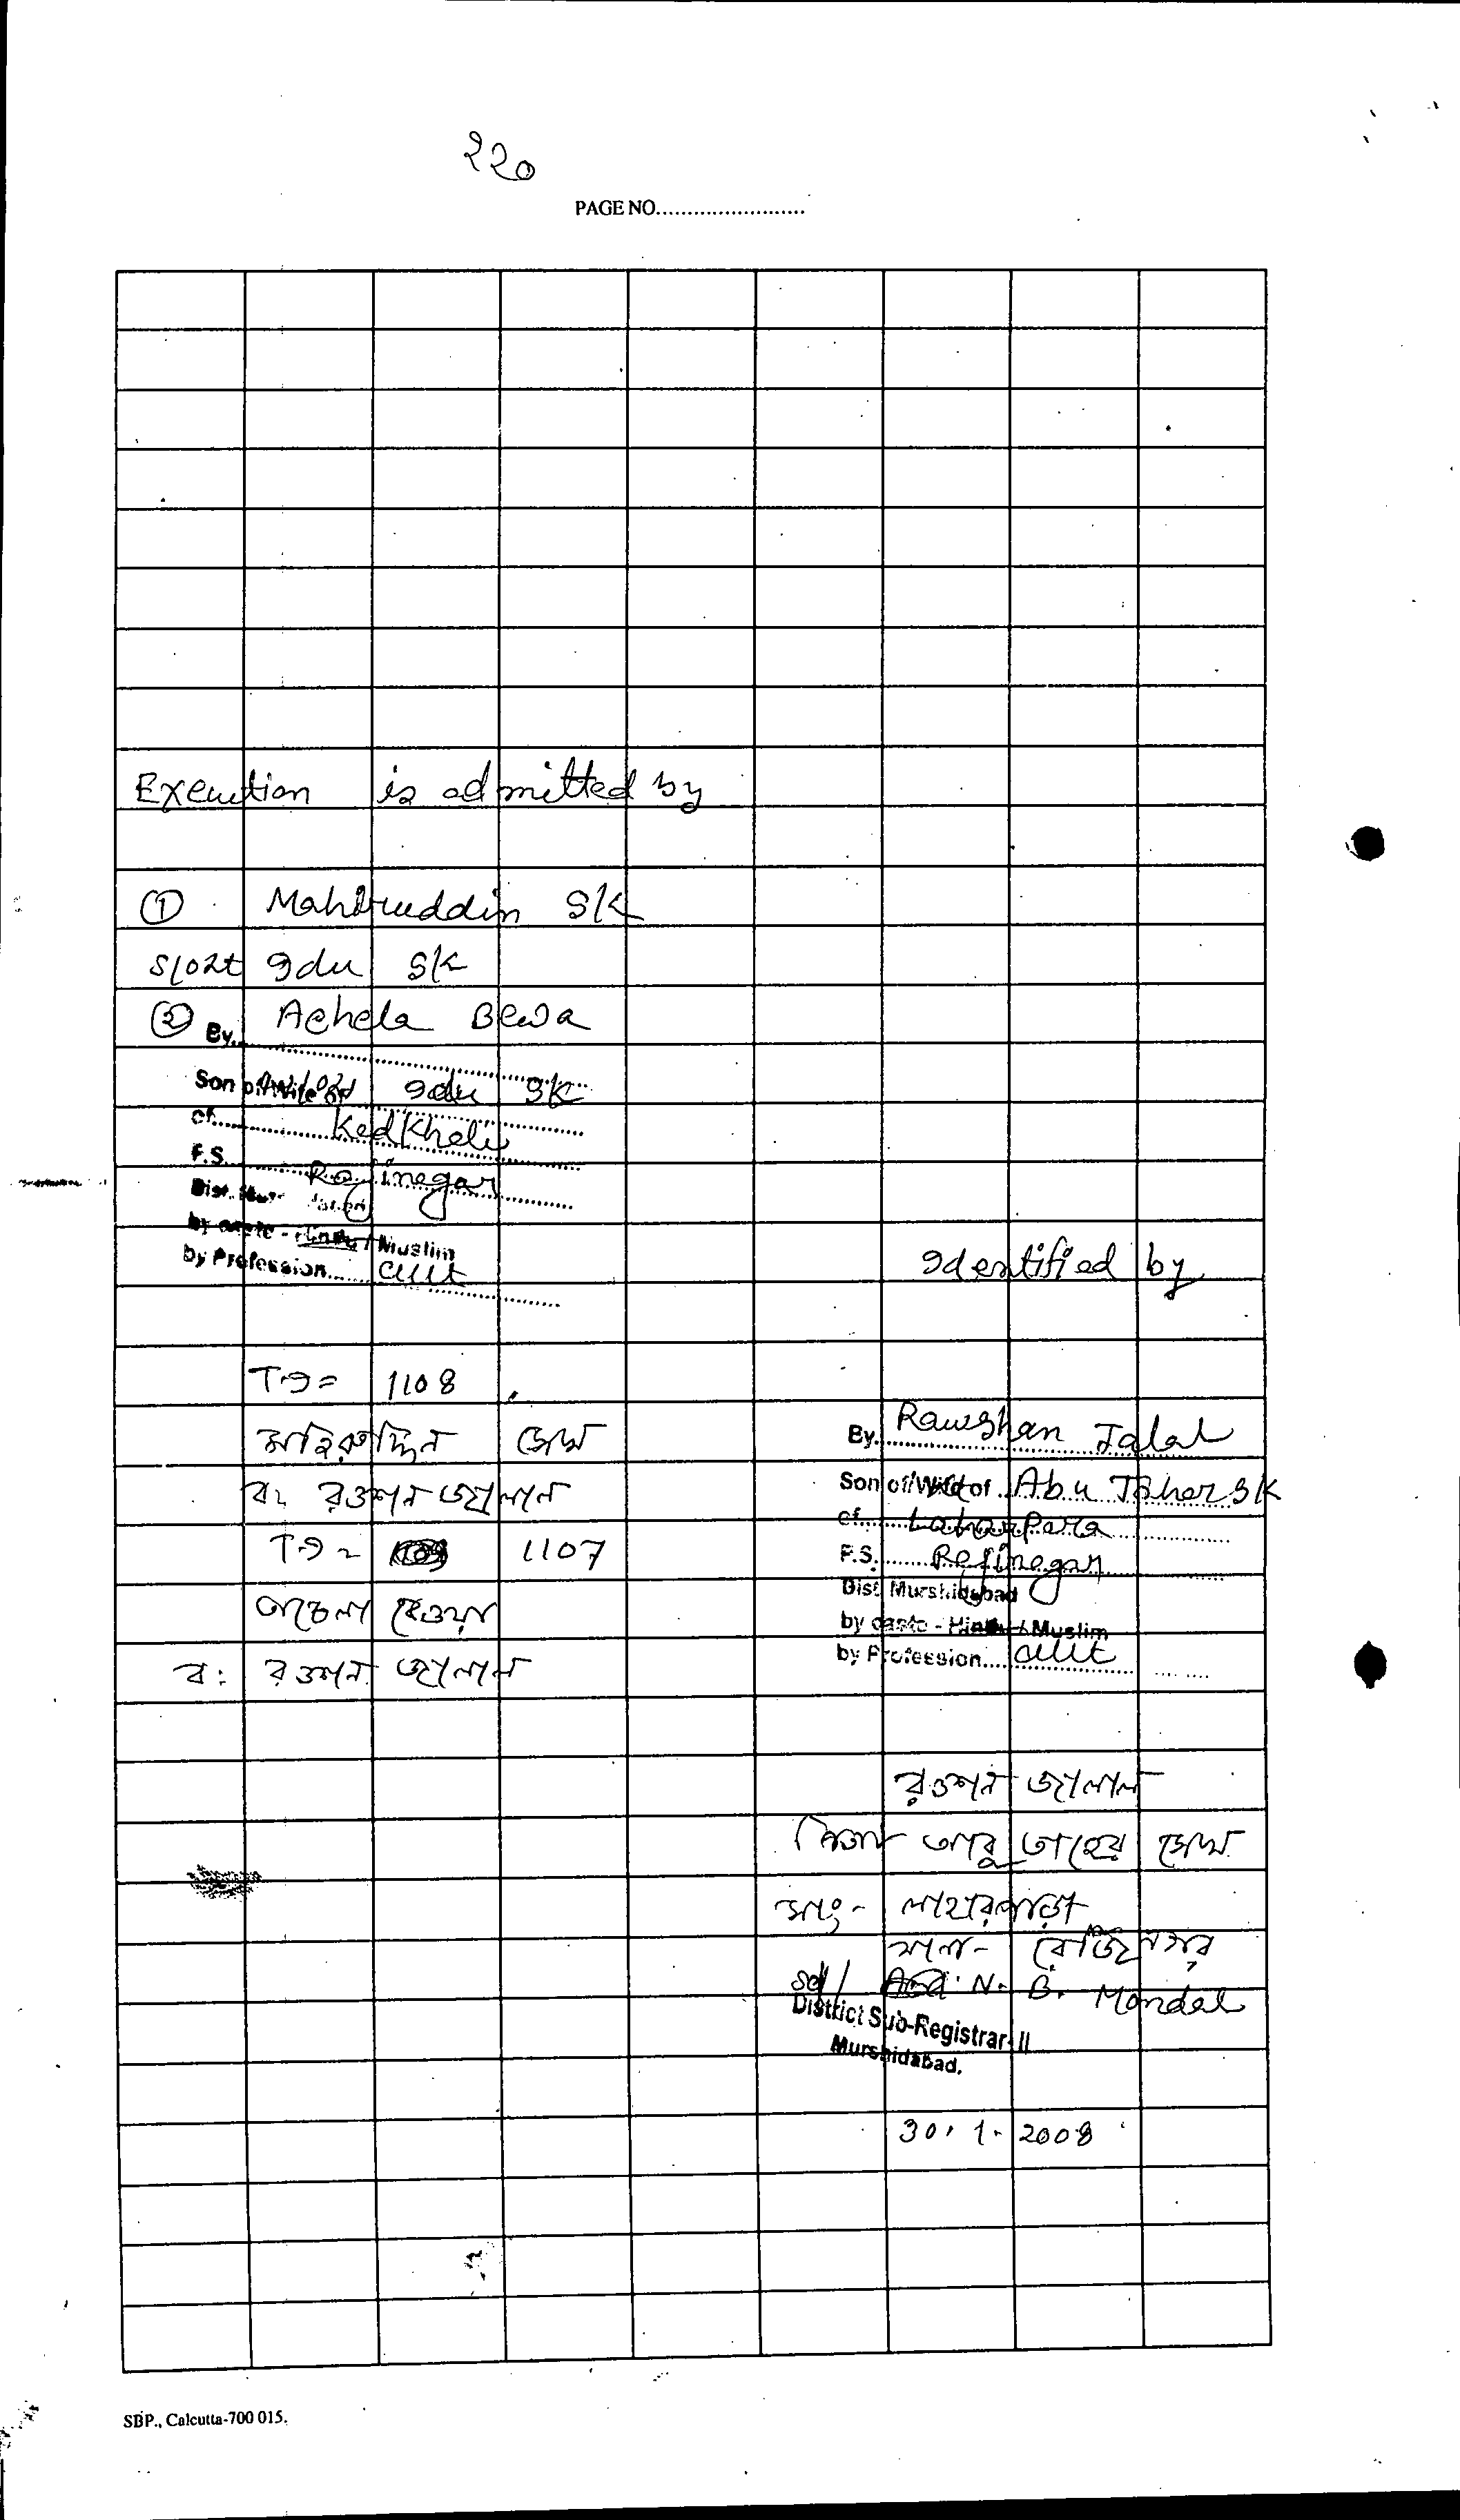 ২২০
PAGE NO........................
Execution is admitted by
① Mahiruddin SK
S/o Idu SK
② By. Achela Bewa
Son of/Wife of Idu SK
of Kedkhali
P.S. Rejinagar
Dist. Murshidabad
by caste - Hindu / Muslim
by Profession cult
Identified by
T.I = 1108
মাহিরুদ্দিন সেখ
ব: রওশন জালাল
T.I = 1107
আচেলা বেওয়া
ব: রওশন জালাল
By. Rawshan Jalal
Son of/Wife of Abu Taher SK
of Laharpara
P.S. Rejinagar
Dist Murshidabad
by caste - Hindu / Muslim
by Profession cult
রওশন জালাল
পিতা আবু তাহের সেখ
সাং- লাহারপাড়া
থানা- রেজিনগর
Sd/ N. B. Mondal
District Sub-Registrar-II
Murshidabad.
30. 1. 2008
SBP., Calcutta-700 015.